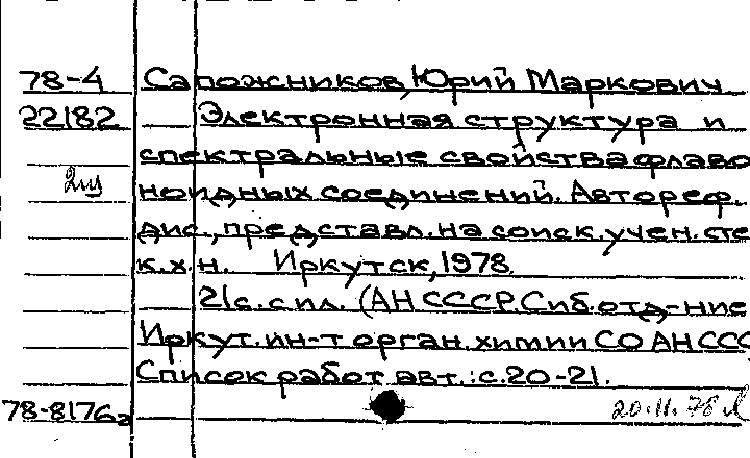 78-4 Сапожников, Юрий Маркович
22182 Электронная структура и
спектральные свойства флаво
ноидных соединений. Автореф.
дис., представл. на соиск. учен. сте
к.х.н. Иркутск, 1978.
21с. с ил. (АН СССР. Сиб. отд-ние
Иркут. ин-т орган. химии СО АН ССС
Список работ авт.: с. 20-21.
78-8176а 20.11.78